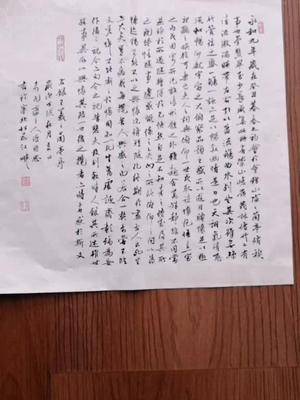 永和九年歲在癸丑暮春之初會于會稽山陰之蘭亭脩禊
事也群賢畢至少長咸集此地有崇山峻領茂林脩竹又有
清流激湍映帶左右引以為流觴曲水列坐其次雖無絲
竹管弦之盛一觴一詠亦足以暢敘幽情是日也天朗氣清惠
風和暢仰觀宇宙之大俯察品類之盛所以遊目騁懷足以極
視聽之娛信可樂也夫人之相與俯仰一世或取諸懷抱悟言一室
之內或因寄所託放浪形骸之外雖趣舍萬殊靜躁不同當
其欣於所遇暫得於己快然自足不知老之將至及其所
之既惓情隨事遷感慨係之矣向之所欣俛仰之間以為
陳迹猶不能不以之興懷況脩短隨化終期於盡古人云死生
亦大矣豈不痛哉每攬昔人興感之由若合一契未嘗不臨
文嗟悼不能喻之於懷固知一死生為虛誕齊彭殤為妄
作後之視今亦由今之視昔悲夫故列敘時人錄其所述雖世
殊事異所以興懷其致一也後之攬者亦將有感於斯文
右錄王羲之蘭亭序